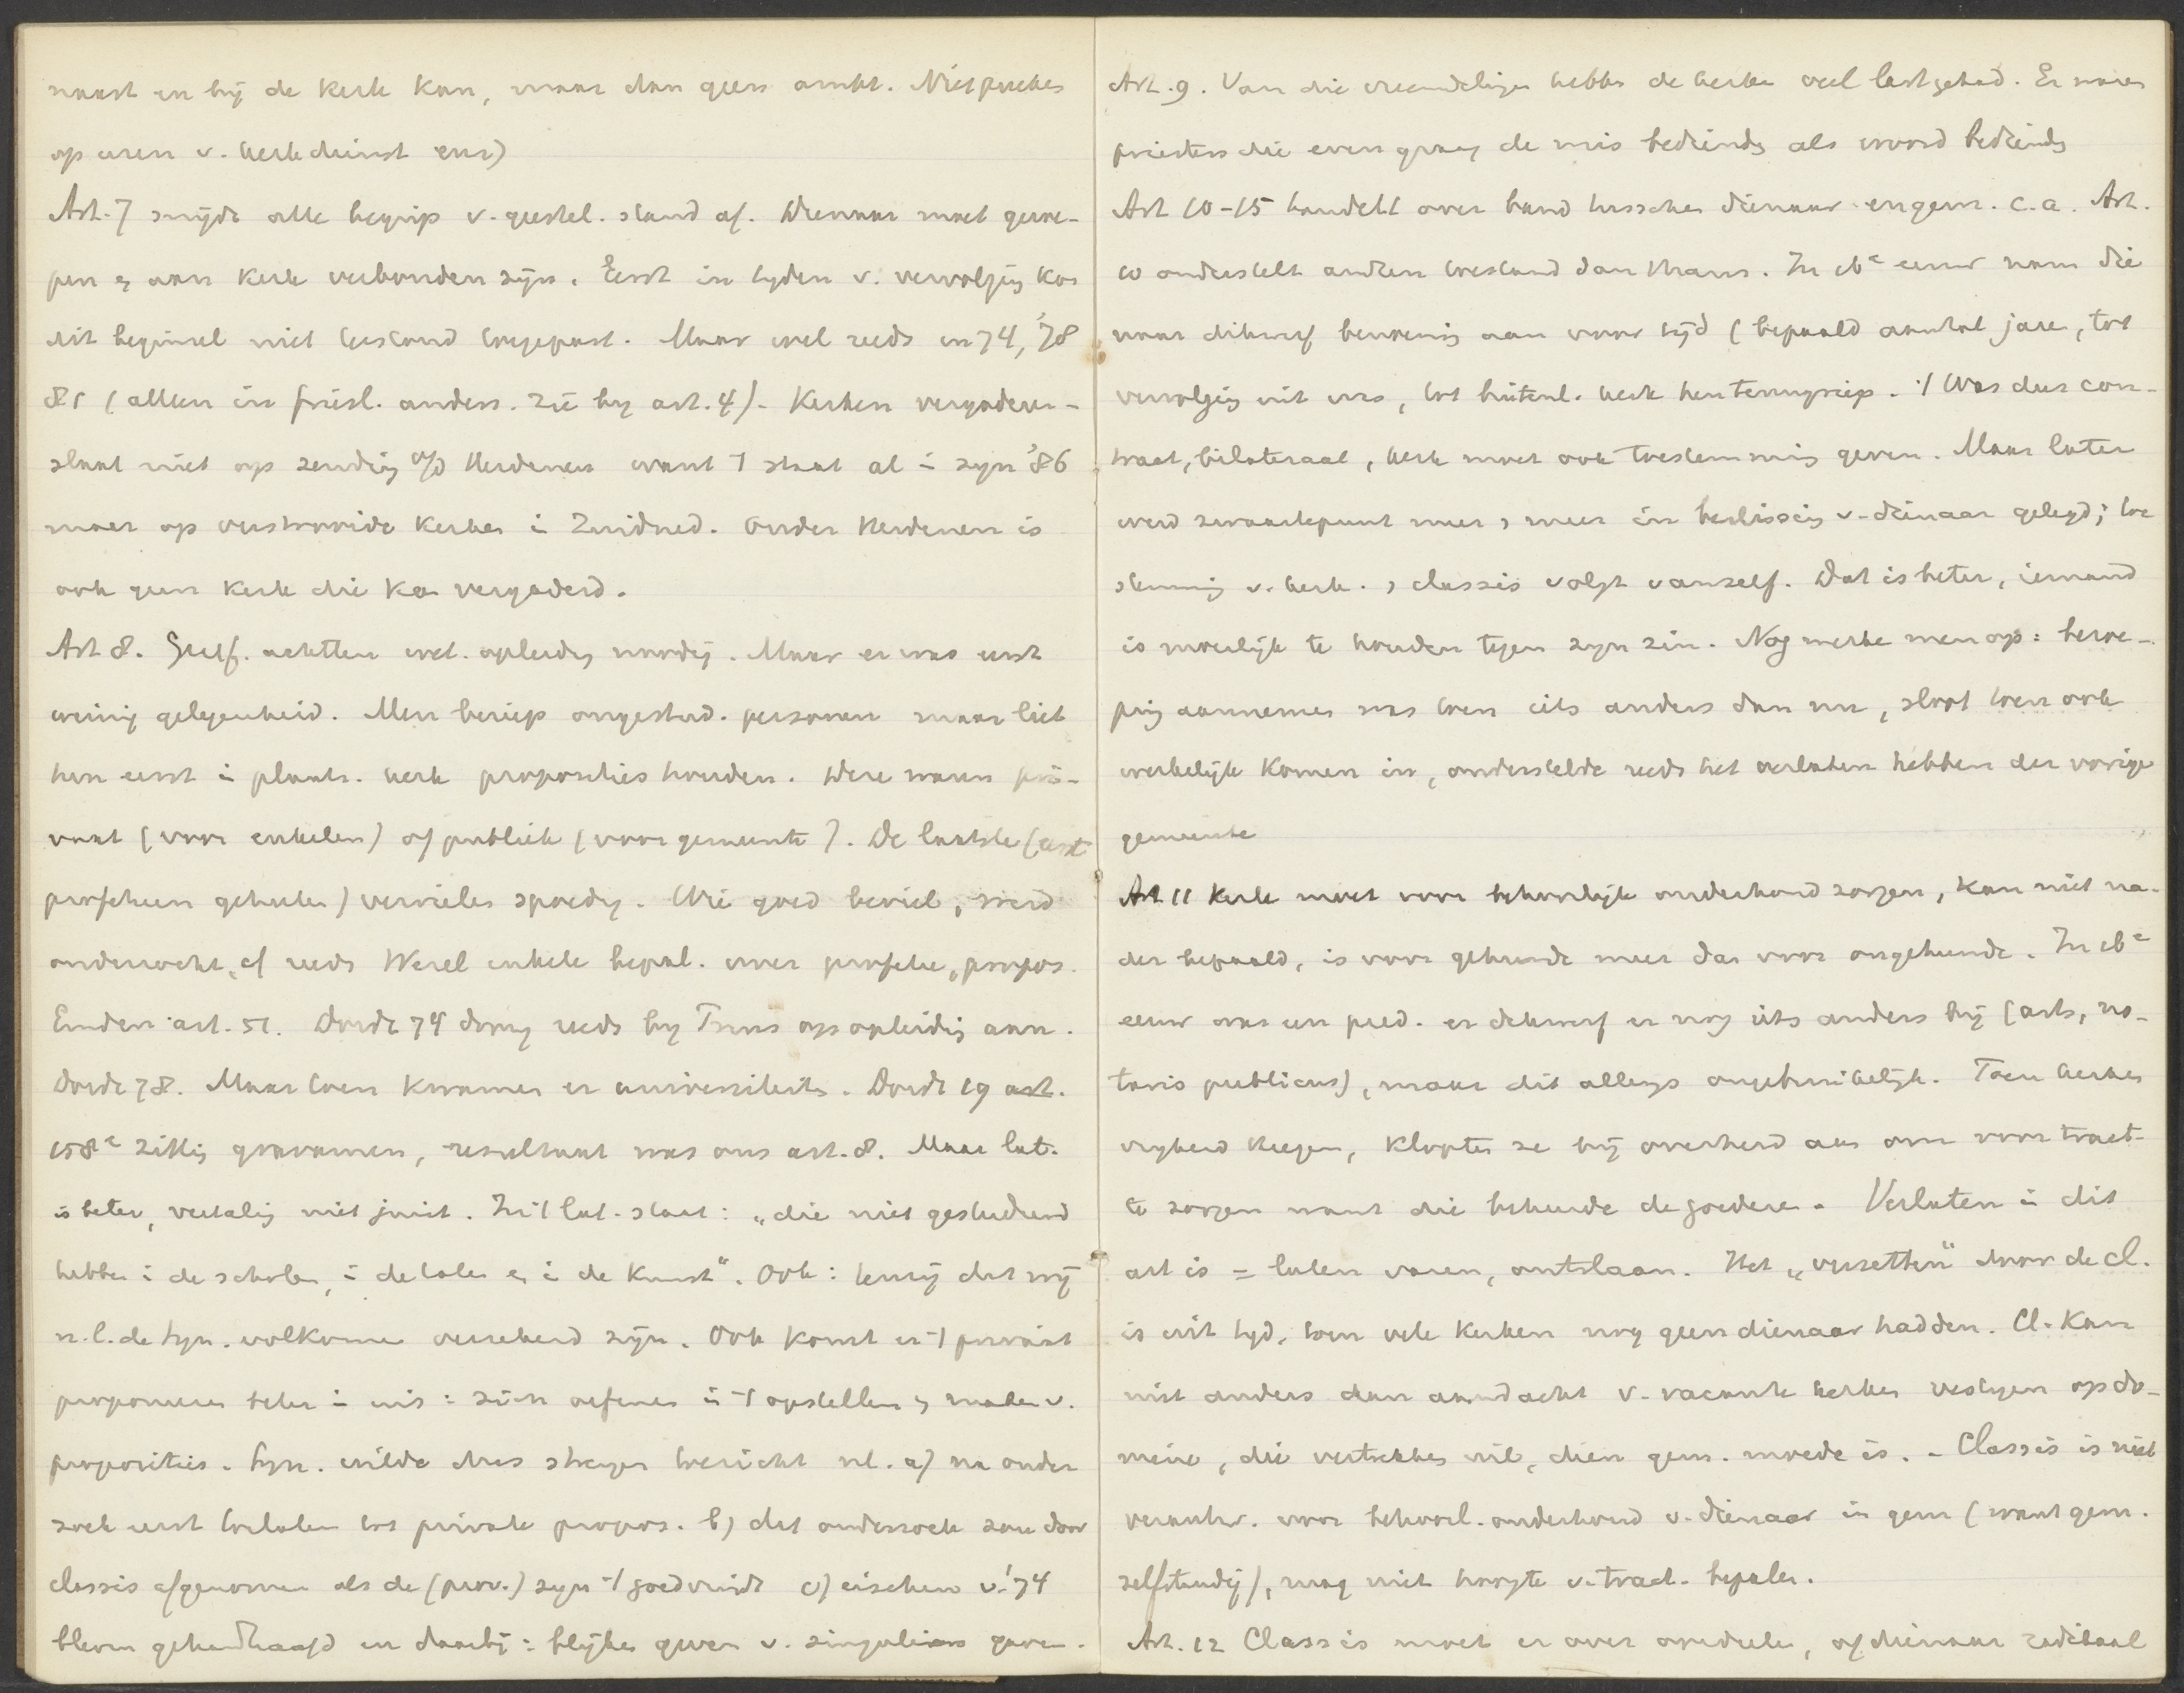 naast en bij de kerk kan, maar dan geen ambt. Niet preeken
op uren v. kerkdienst enz)
Art. 7 snijdt alle begrip v. geestel. stand af. Dienaar moet geroe-
pen & aan kerk verbonden zijn. Eerst in tyden v. vervolging kon
dit beginsel niet toegepast. Maar wel reeds in 74, '78
81 (alleen in friesl. anders. zie by art. 4). Kerken vergaderen -
slaat niet op zending o/d Heidenen want 't staat al i syn '86
maar op verstrooide kerken i Zuidned. Onder Heidenen is
ook geen kerk die kan vergaderd.
Art 8. Geref. achtten wet. opleiding noodig. Maar er was eerst
weinig gelegenheid. Men beriep ongestud. personen maar liet
hen eerst i plaats. kerk proposities houden. Deze waren pri-
vaat (voor enkelen) of publiek (voor gemeente). De laatste (eerst
profetieen geheeten) vervielen spoedig. Wie goed beviel, werd
onderzocht, cf reeds Wezel enkele bepal. over profetie, propos.
Emden art. 51. Dordt 74 drong reeds by Truus op opleiding aan.
Dordt 78. Maar toen kwamen er universiteiten. Dordt 19 art.
158e zittig gravamen, resultaat was ons art. 8. Maar lat.
is beter, vertaling niet juist. In 't lat. staat: „die niet gestudeerd
hebben i de scholen, i de talen en i de kunst". Ook: tenzij dat wij
n.l. de syn. volkomen verzekerd zijn. Ook komt er 't privaat
proponeren beter i uit: zich oefenen i 't opstellen & maken v.
proposities. Syn. wilde dus streng toezicht nl. a) na onder
zoek eerst toelaten tot private propos. b) dat onderzoek zou door
classis afgenomen als de (prov.) syn 't goedvindt c) eischen v. '74
bleven gehandhaafd en daarbij: blijken geven v. singuliere gaven.
Art. 9. Van die vreemdelingen hebben de kerken veel last gehad. Er waren
priesters die even graag de mis bedienden als woord bedienden
Art 10-15 handelt over band tusschen dienaar en gem. c.a. Art.
10 onderstelt anderen toestand dan thans. In 16e eeuw nam die
naar dikwerf beroeping aan voor tijd (bepaald aantal jaren, tot
vervolging uit was, tot buitenl. kerk hen terugriep. 't Was dus con-
tract, bilateraal, kerk moet ook toestemming geven. Maar later
werd zwaartepunt meer & meer in beslissing v. dienaar gelegd; toe
stemming v. kerk. & classis volgt vanzelf. Dat is beter, iemand
is moeilijk te houden tegen zyn zin. Nog merke men op: beroe-
ping aannemen was toen iets anders dan nu, sloot toen ook
werkelijk komen in, onderstelde reeds het verlaten hebben der vorige
gemeente
Art 11 Kerk moet voor behoorlijk onderhoud zorgen, kan niet na-
der bepaald, is voor gehuwde meer dan voor ongehuwde. In 16e
eeuw was een pred. er dikwerf er nog iets anders bij (arts, no-
taris publicus), maar dit allengs ongebruikelijk. Toen kerken
vryheid kregen, klopten ze bij overheid aan om voor tract.
te zorgen want die beheerde de goederen. Verlaten i dit
art is = laten varen, ontslaan. Het „verzetten" door de cl.
is uit tyd, toen vele kerken nog geen dienaar hadden. Cl. kan
niet anders dan aandacht v. vacante kerken vestigen op do-
minee, die vertrekken wil, dien gem. moede is. - Classis is niet
verantw. voor behoorl. onderhoud v. dienaar in gem (want gem.
zelfstandig), mag niet hoogte v. tract. bepalen.
Art. 12 Classis moet er over oordeelen, of dienaar radikaal